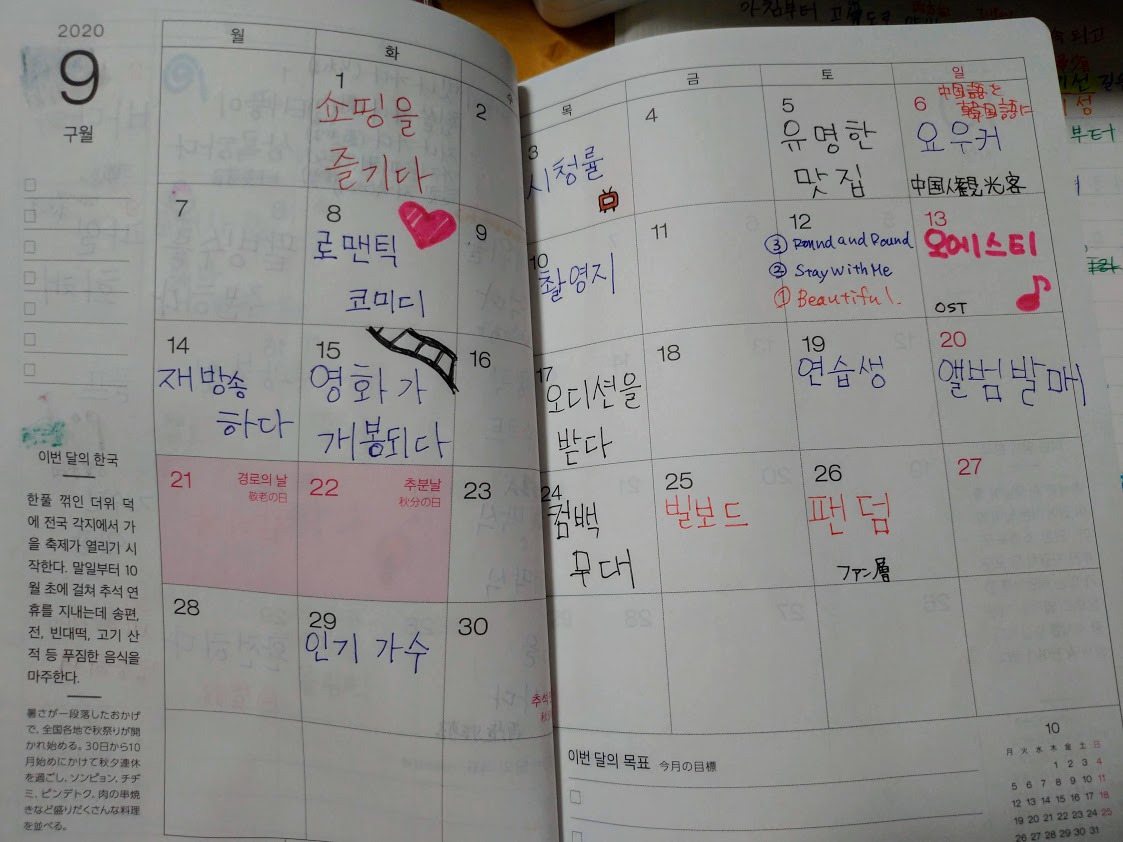 2020
9
구월
월
화
수
목
금
토
일
1
쇼핑을
즐기다
2
3
시청률
4
5
유명한
맛집
6
中国語を
韓国語に
요우커
中国人観光客
7
8
로맨틱
코미디
9
10
촬영지
11
12
③ Round and Round
② Stay With Me
① Beautiful.
13
오에스티
OST
14
재방송
하다
15
영화가
개봉되다
16
17
오디션을
받다
18
19
연습생
20
앨범발매
21
경로의 날
敬老の日
22
추분날
秋分の日
23
24
컴백
무대
25
빌보드
26
팬덤
ファン層
27
28
29
인기 가수
30
추석
이번 달의 한국
한풀 꺾인 더위 덕
에 전국 각지에서 가
을 축제가 열리기 시
작한다. 말일부터 10
월 초에 걸쳐 추석 연
휴를 지내는데 송편,
전, 빈대떡, 고기 산
적 등 푸짐한 음식을
마주한다.
暑さが一段落したおかげ
で、全国各地で秋祭りが開
かれ始める。30日から10
月始めにかけて秋夕連休
を過ごし、ソンピョン、チヂ
ミ、ピンデトク、肉の串焼
きなど盛りだくさんな料理
を並べる。
이번 달의 목표 今月の目標
10
月 火 水 木 金 土 日
1 2 3 4
5 6 7 8 9 10 11
12 13 14 15 16 17 18
19 20 21 22 23 24 25
26 27 28 29 30 31
아침부터
부터